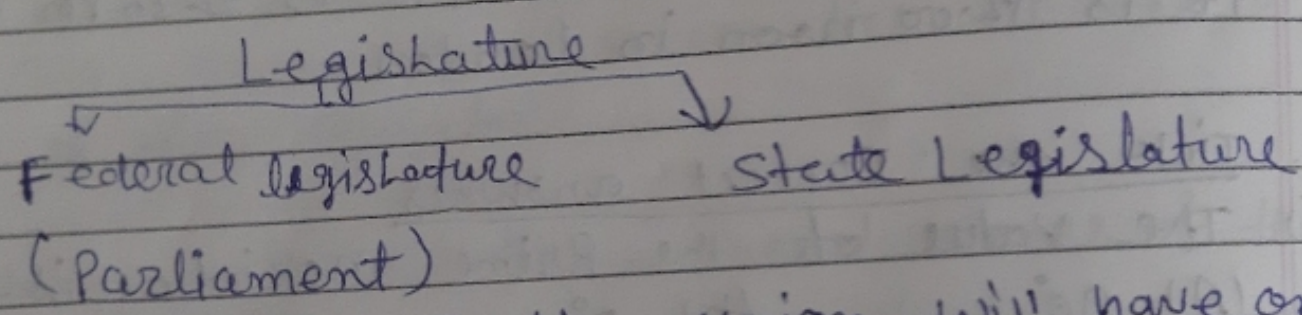 Legislature
Federal legislature State Legislature
(Parliament)
will have